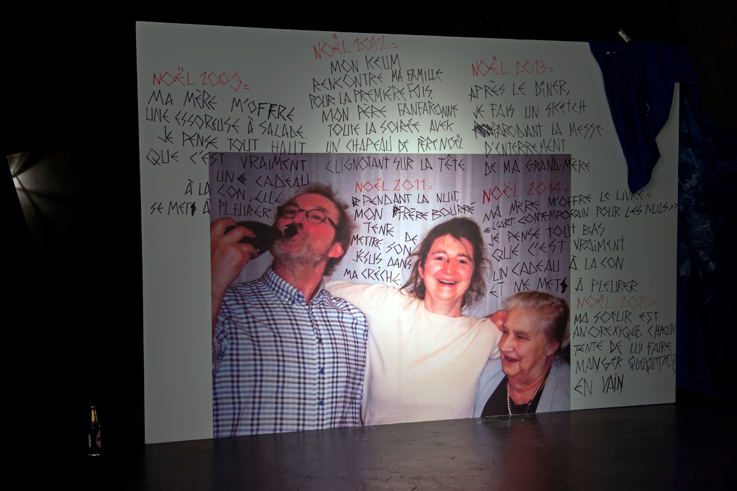 NOËL 2009=
MA MÈRE M'OFFRE
UNE ESSOREUSE À SALADE
JE PENSE TOUT HAUT
QUE C'EST VRAIMENT
UN CADEAU
À LA CON, ELLE
SE MET À PLEURER
NOËL 2012=
MON KEUM
RENCONTRE MA FAMILLE
POUR LA PREMIÈRE FOIS,
MON PÈRE FANFARONNE
TOUTE LA SOIRÉE AVEC
UN CHAPEAU DE PÈRE NOËL
CLIGNOTANT SUR LA TÊTE
NOËL 2011=
PENDANT LA NUIT,
MON FRÈRE BOURRÉ
TENTE DE
METTRE SON
JÉSUS DANS
MA CRÈCHE
NOËL 2013=
APRÈS LE DÎNER,
JE FAIS UN SKETCH
PARODIANT LA MESSE
D'ENTERREMENT
DE MA GRAND-MÈRE.
NOËL 2014=
MA MÈRE M'OFFRE LE LIVRE=
«L'ART CONTEMPORAIN POUR LES NULS»
JE PENSE TOUT BAS
QUE C'EST VRAIMENT
UN CADEAU À LA CON
ET ME MET À PLEURER
NOËL 2010=
MA SOEUR EST
ANOREXIQUE, CHACUN
TENTE DE LUI FAIRE
MANGER
EN VAIN